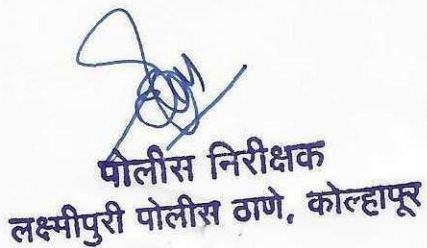 पोलीस निरीक्षक
लक्ष्मीपुरी पोलीस ठाणे, कोल्हापूर